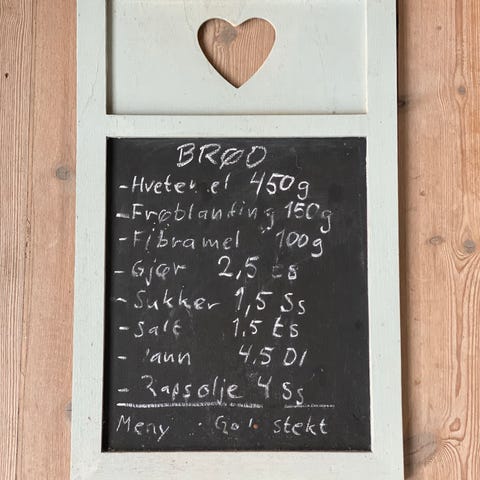 BRØD
- Hvetemel 450g
- Frøblanting 150g
- Fibramel 100g
- Gjør 2,5 ts
- Sukker 1,5 Ss
- Salt 1.5 ts
- 4,5 Dl
- Rapsolje 4 Ss
Meny stekt